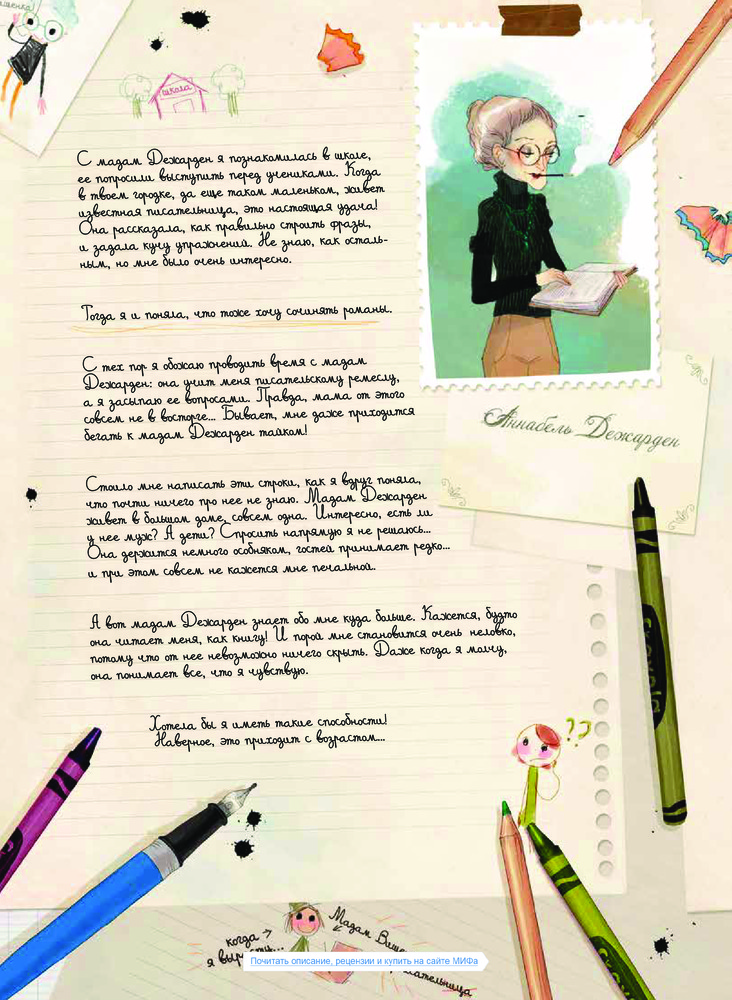 школа
С мадам Дежарден я познакомилась в школе,
ее попросили выступить перед учениками. Когда
в твоем городке, да еще таком маленьком, живет
известная писательница, это настоящая удача!
Она рассказала, как правильно строить фразы,
и задала кучу упражнений. Не знаю, как осталь-
ным, но мне было очень интересно.
Тогда я и поняла, что тоже хочу сочинять романы.
С тех пор я обожаю проводить время с мадам
Дежарден: она учит меня писательскому ремеслу,
а я засыпаю ее вопросами. Правда, мама от этого
совсем не в восторге... Бывает, мне даже приходится
бегать к мадам Дежарден тайком!
Аннабель Дежарден
Стоило мне написать эти строки, как я вдруг поняла,
что почти ничего про нее не знаю. Мадам Дежарден
живет в большом доме, совсем одна. Интересно, есть ли
у нее муж? А дети? Спросить напрямую я не решаюсь...
Она держится немного особняком, гостей принимает редко...
и при этом совсем не кажется мне печальной.
А вот мадам Дежарден знает обо мне куда больше. Кажется, будто
она читает меня, как книгу! И порой мне становится очень неловко,
потому что от нее невозможно ничего скрыть. Даже когда я молчу,
она понимает все, что я чувствую.
Хотела бы я иметь такие способности!
Наверное, это приходит с возрастом...
??
когда
я
Мадам
Почитать описание, рецензии и купить на сайте МИФа